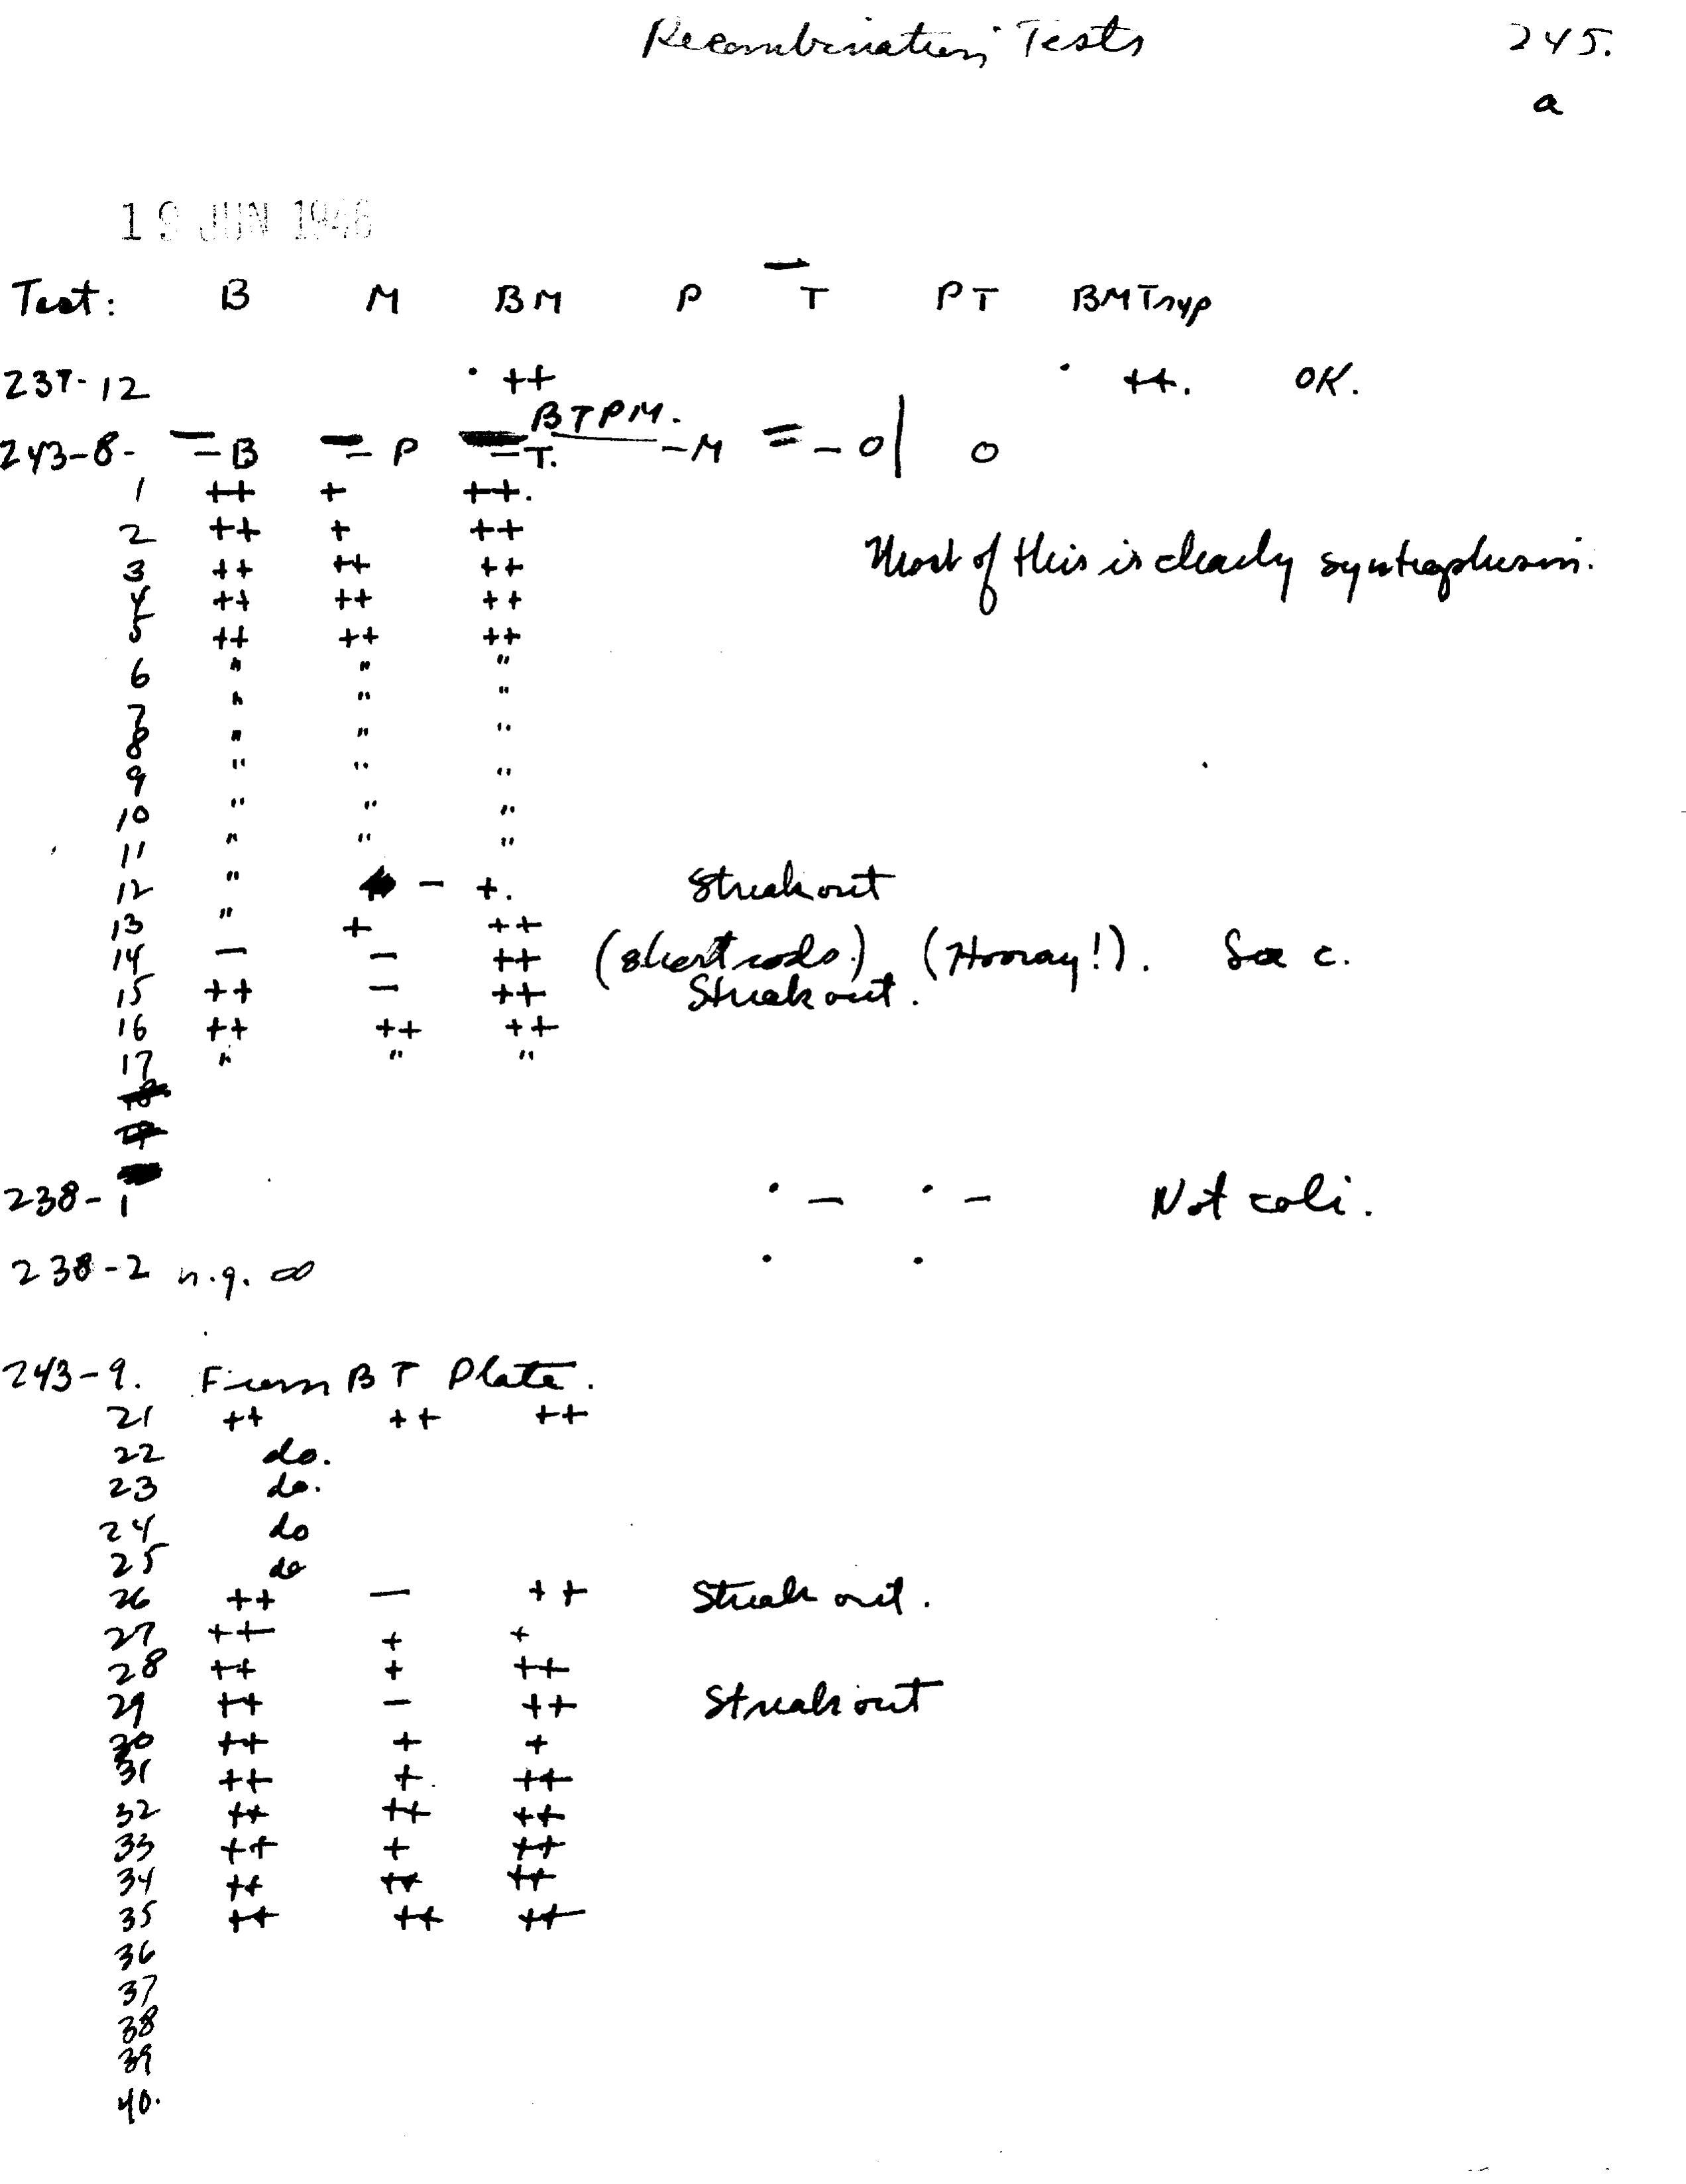 Recombination Tests 245.
a
19 JUN 1946
Test: B M BM P T PT BMTryp
237-12 · ++ · ++. OK.
BTPM.
243-8- -B -P -T. -M = -0| 0
1 ++ + ++.
2 ++ + ++
Most of this is clearly syntrophism.
3 ++ ++ ++
4 ++ ++ ++
5 ++ ++ ++
6 " " "
7 " " "
8 " " "
9 " " "
10 " " "
11 " " "
12 " - +. Streak out
13 " + ++
14 - - ++ (short rods.) (Hooray!). See c.
15 ++ - ++ Streak out.
16 ++ ++ ++
17 " " "
18
19
238-1 · - · - Not coli.
238-2 n.g. ∞ · ·
243-9. From BT Plate.
21 ++ ++ ++
22 do.
23 do.
24 do
25 do
26 ++ - ++ Streak out.
27 ++ + +
28 ++ + ++
29 ++ - ++ Streak out
30 ++ + +
31 ++ + ++
32 ++ ++ ++
33 ++ + ++
34 ++ ++ ++
35 ++ ++ ++
36
37
38
39
40.